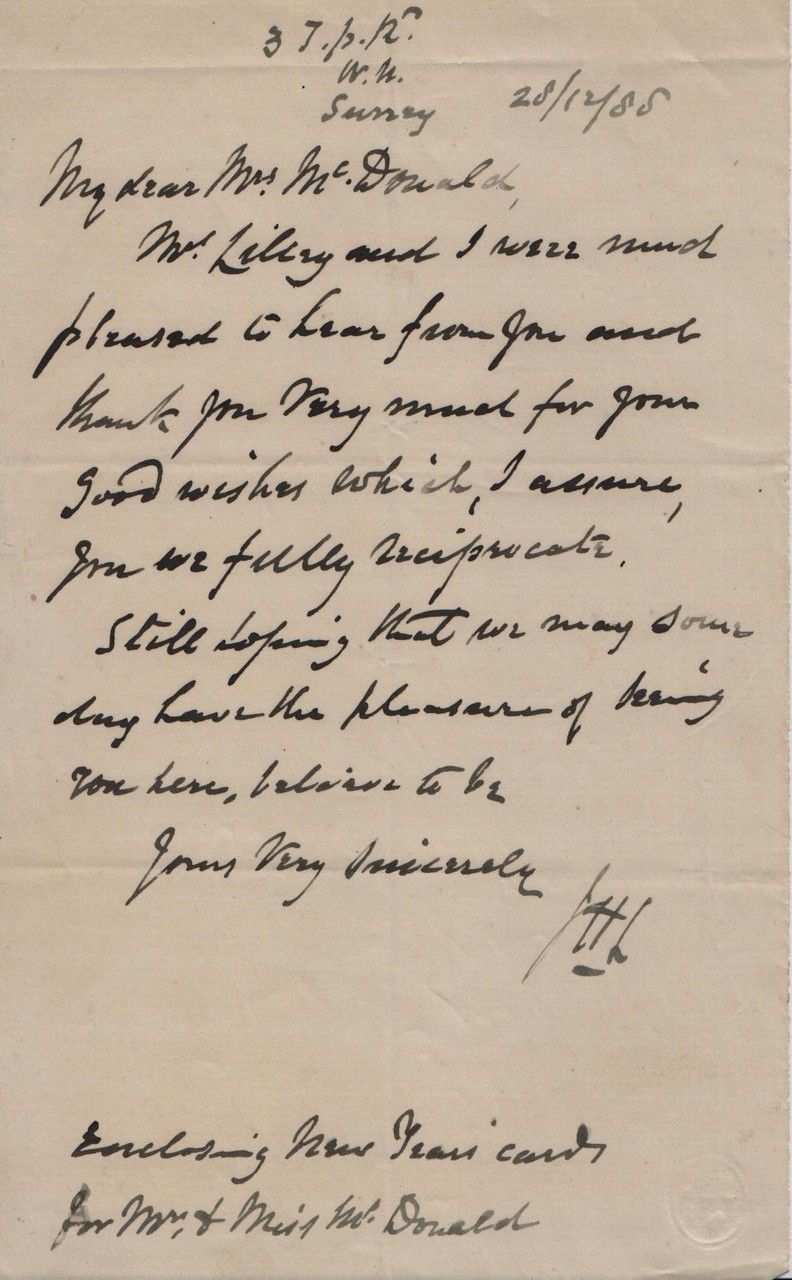 3 T.p.Rd.
W.N.
Surrey 28/12/85
My dear Mrs. Mc.Donald,
Mrs Lilley and I were much
pleased to hear from you and
thank you very much for your
good wishes which, I assure,
you we fully reciprocate.
Still hoping that we may some
day have the pleasure of seeing
you here, believe to be
Yours very sincerely
JHL
Enclosing New Years cards
for Mrs. & Miss Mc Donald